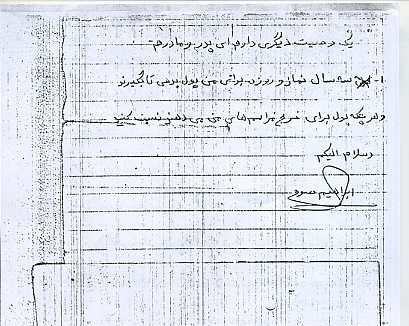 یک وصیت دیگری دارم ای پدر و مادرم
۱- سه سال نماز و روزه برای من پول بدهی تا بگیرند
و هر چه پول برای خرج مراسم های من می دهند نسبت کنید
وسلام الیکم
ابراهیم